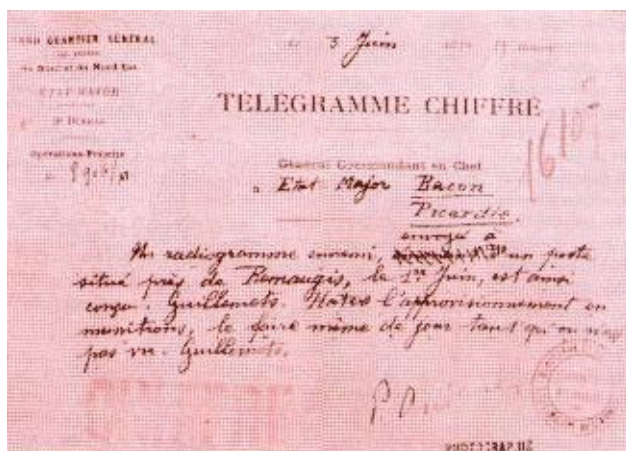 GRAND QUARTIER GÉNÉRAL
du Nord et du Nord Est
ÉTAT-MAJOR
3e BUREAU
3 Juin
TÉLÉGRAMME CHIFFRÉ
Général Commandant en Chef
a Etat Major Bacon
Picardie.
envoyé à
Un radiogramme ennemi, un poste
situé près de Remaugis, le 1er Juin, est ainsi
conçu : Guillemets. Hatez l'approvisionnement en
munitions, le faire même de jour tant qu'on n'est
pas vu. Guillemets.
PHOTOGRAPHIÉ